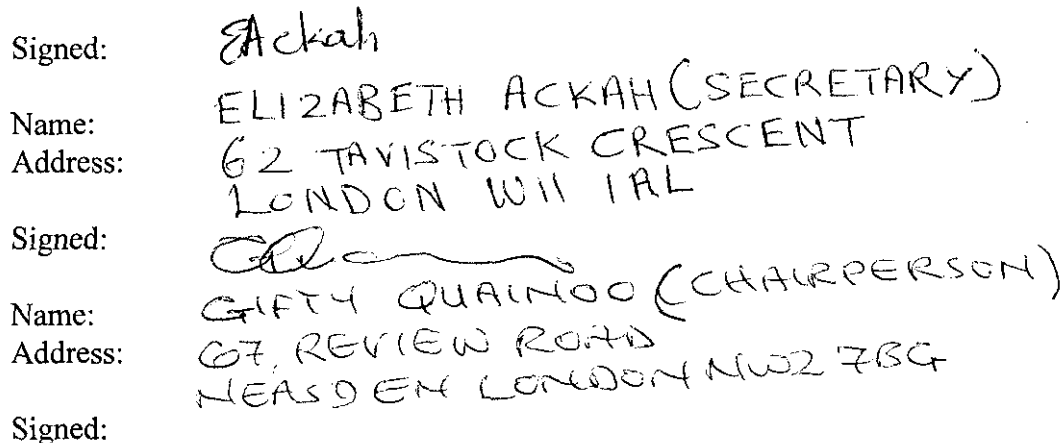 Signed: EAckah
Name: ELIZABETH ACKAH (SECRETARY)
Address: 62 TAVISTOCK CRESCENT
LONDON W11 1AL
Signed:
Name: GIFTY QUAINOO (CHAIRPERSON)
Address: 67, REVIEW ROAD
NEASDEN LONDON NW2 7BG
Signed: